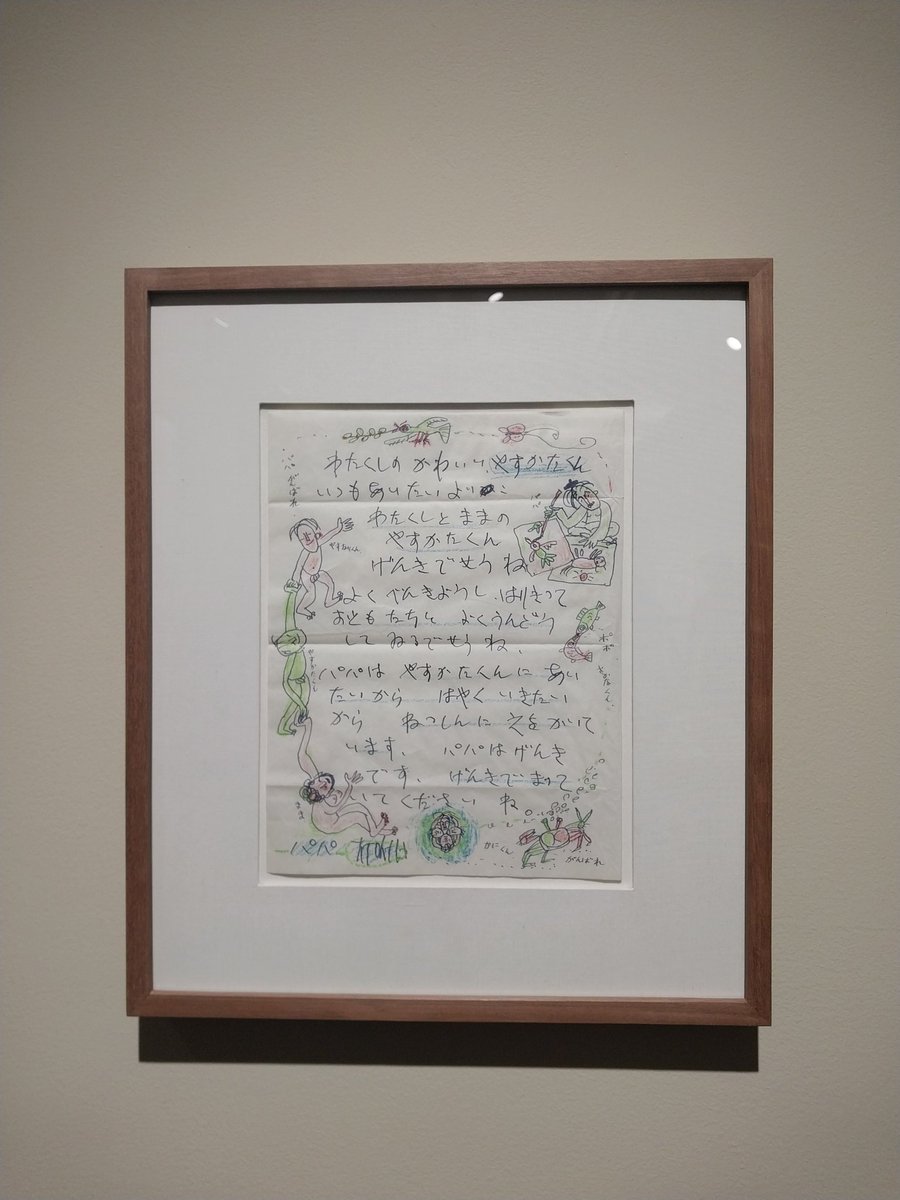 わたくしの かわいい やすかたくん
いつも あいたい より
わたくしと ままの
やすかたくん
げんきで せう ね
よく べんきようし はりきって
おともたちと よくうんどう
して ゐるでせう ね、
パパは やすかたくんに あい
たいから はやく いきたい
から ねっしんに えをかいて
います、 パパは げんき
です、 げんきで まって
いて ください ね
パパ
パパ
がんばれ
やすかたくん
やすかたくん
まま
パパ
かにくん
がんばれ